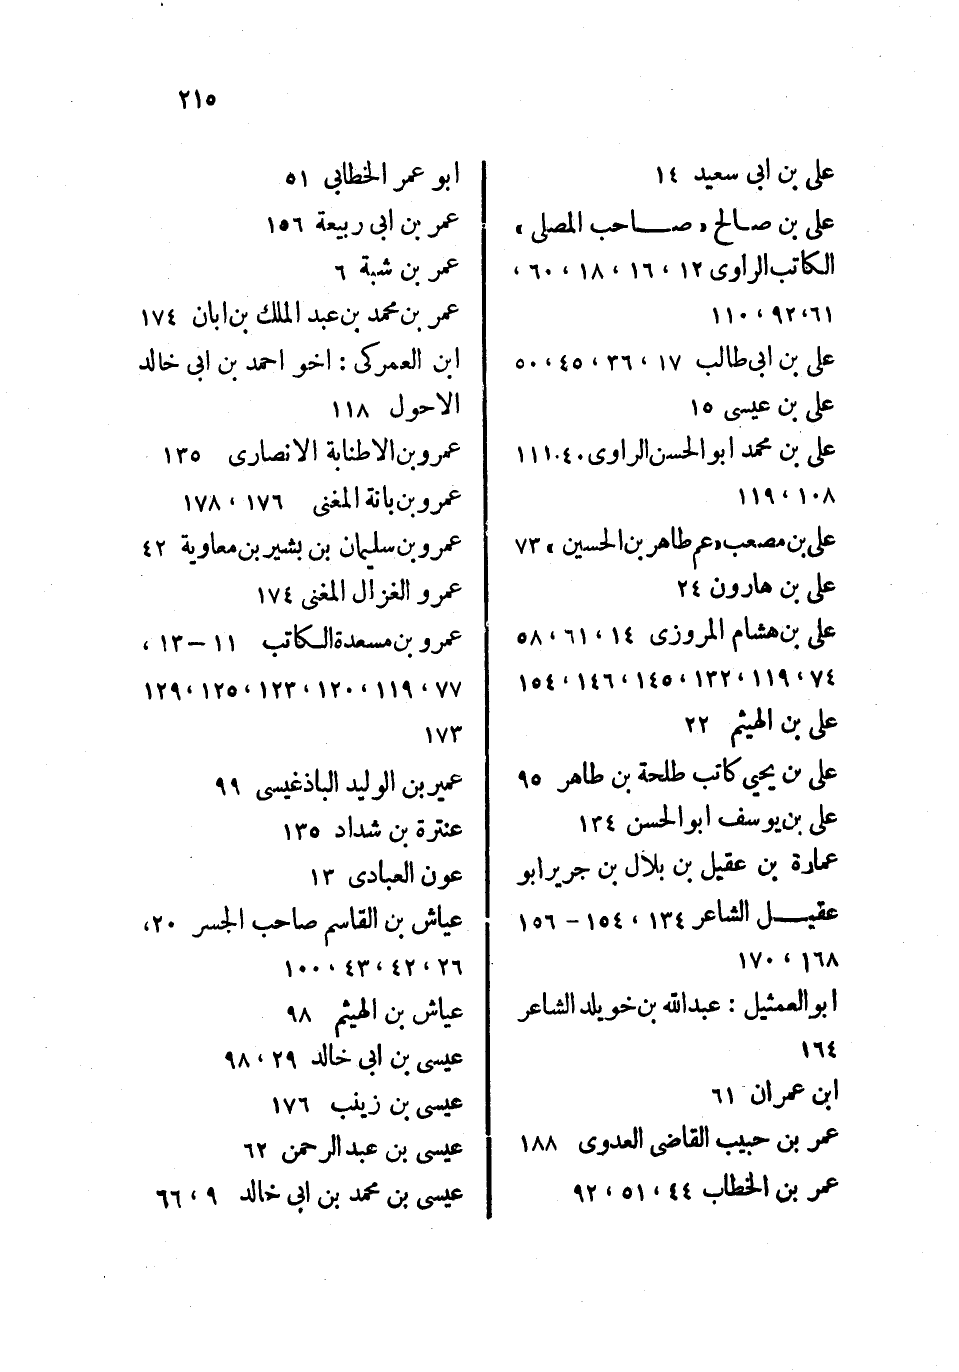 ٢١٥
على بن ابى سعيد ١٤
على بن صالح « صاحب المصلى »
الكاتب الراوى ١٢ ، ١٦ ، ١٨ ، ٦٠ ،
٦١ ، ٩٢ ، ١١٠
على بن ابى طالب ١٧ ، ٣٦ ، ٤٥ ، ٥٠
على بن عيسى ١٥
على بن محمد ابو الحسن الراوى ٤٠ ، ١١١
١٠٨ ، ١١٩
على بن مصعب « عم طاهر بن الحسين » ٧٣
على بن هارون ٢٤
على بن هشام المروزى ١٤ ، ٦١ ، ٥٨
٧٤ ، ١١٩ ، ١٣٢ ، ١٤٥ ، ١٤٦ ، ١٥٤
على بن الهيثم ٢٢
على بن يحيى كاتب طلحة بن طاهر ٩٥
على بن يوسف ابو الحسن ١٣٤
عمارة بن عقيل بن بلال بن جرير ابو
عقيل الشاعر ١٣٤ ، ١٥٤ – ١٥٦
١٦٨ ، ١٧٠
ابو العمثيل : عبد الله بن خويلد الشاعر
١٦٤
ابن عمران ٦١
عمر بن حبيب القاضى العدوى ١٨٨
عمر بن الخطاب ٤٤ ، ٥١ ، ٩٢
ابو عمر الخطابى ٥١
عمر بن ابى ربيعة ١٥٦
عمر بن شبة ٦
عمر بن محمد بن عبد الملك بن ابان ١٧٤
ابن العمركى : اخو احمد بن ابى خالد
الاحول ١١٨
عمرو بن الاطنابة الانصارى ١٣٥
عمرو بن بانة المغنى ١٧٦ ، ١٧٨
عمرو بن سليمان بن بشير بن معاوية ٤٢
عمرو الغزال المغنى ١٧٤
عمرو بن مسعدة الكاتب ١١ – ١٣ ،
٧٧ ، ١١٩ ، ١٢٠ ، ١٢٣ ، ١٢٥ ، ١٢٩
١٧٣
عمير بن الوليد الباذغيسى ٩٩
عنترة بن شداد ١٣٥
عون العبادى ١٣
عياش بن القاسم صاحب الجسر ٢٠ ،
٢٦ ، ٤٢ ، ٤٣ ، ١٠٠
عياش بن الهيثم ٩٨
عيسى بن ابى خالد ٢٩ ، ٩٨
عيسى بن زينب ١٧٦
عيسى بن عبد الرحمن ٦٢
عيسى بن محمد بن ابى خالد ٩ ، ٦٦